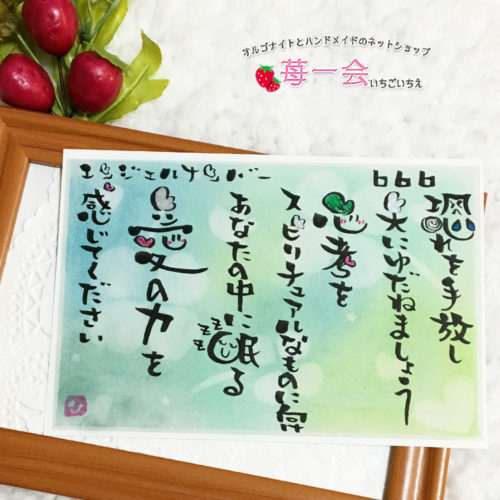 オルゴナイトとハンドメイドのネットショップ
苺一会 いちごいちえ
エンジェルナンバー 666
恐れを手放し
天にゆだねましょう
思考を
スピリチュアルなものに
あなたの中に眠る
zzz
愛の力を
感じてください